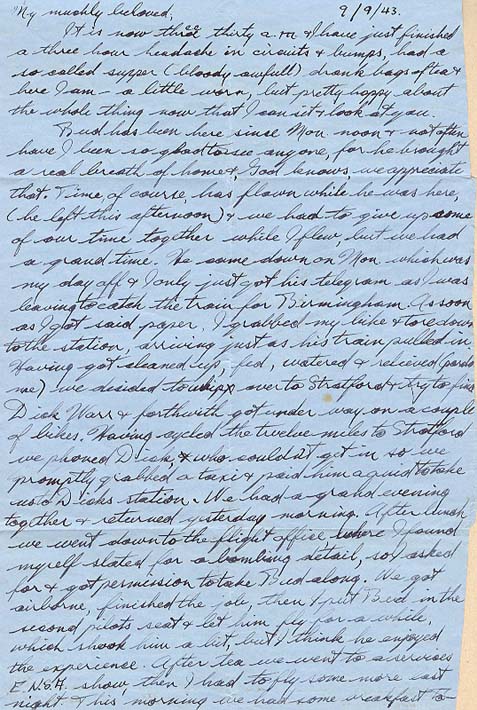 "My muchly beloved,
9/9/43.
It is now three thirty a.m & I have just finished
a three hour headache in circuits & bumps, had a
so called supper (bloody awfull) drank bags of tea &
here I am - a little worn, but pretty happy about
the whole thing now that I can sit & look at you.
Bud has been here since Mon. noon & not often
have I been so glad to see anyone, for he brought
a real breath of home &, God knows we appreciate
that. Time, of course, has flown while he was here,
(he left this afternoon) & we had to give up some
of our time together while I flew, but we had
a grand time. He came down on Mon. which was
my day off & I only just got his telegram as I was
leaving to catch the train for Birmingham. As soon
as I got said paper, I grabbed my bike & tore down
to the station, arriving just as his train pulled in.
Having got cleaned up, fed, watered & relieved (pardon
me) we decided to whipp over to Stratford & try to find
Dick Warr & forthwith got under way on a couple
of bikes. Having cycled the twelve miles to Stratford
we phoned Dick, & who couldn't get in so we
promptly grabbed a taxi & paid him a quid to take
us to Dicks station. We had a grand evening
together & returned yesterday morning. After lunch
we went down to the flight office where I found
myself slated for a bombing detail, so I asked
for & got permission to take Bud along. We got
airborne, finished the job, then I put Bud in the
second pilots seat & let him fly for a while,
which shook him a bit, but I think he enjoyed
the experience. After tea we went to a services
E.N.S.A. show, then I had to fly some more last
night. & this morning we had some breakfast to-